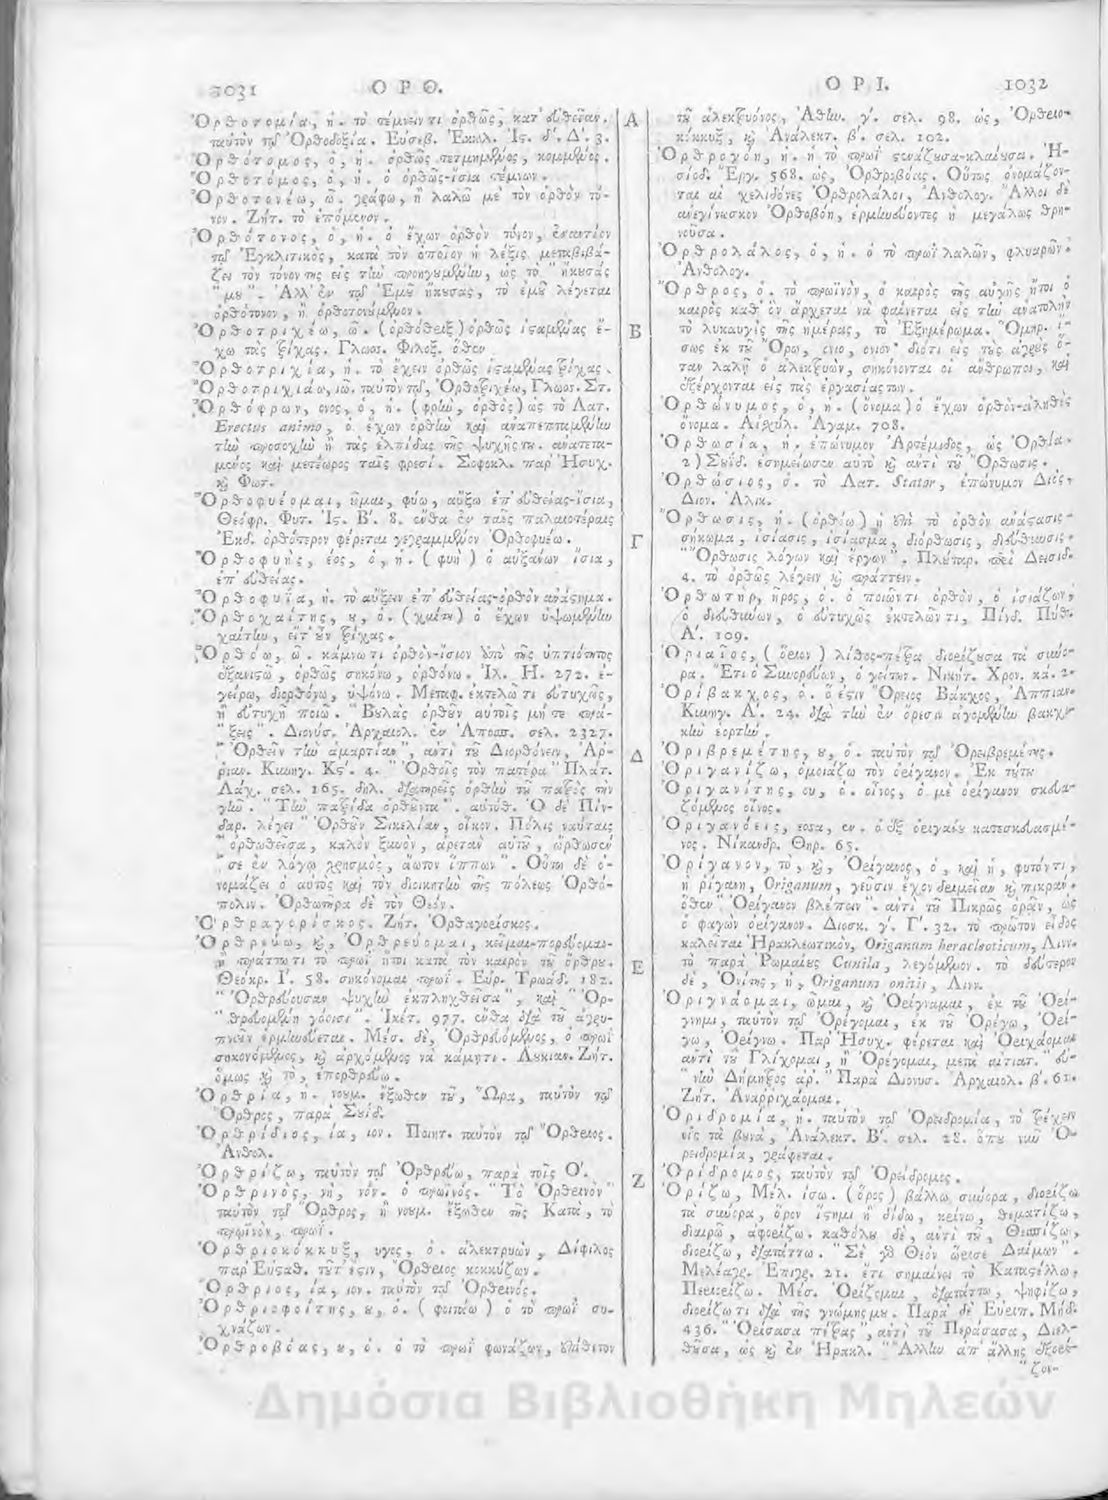 1031 Ο Ρ Θ.
Ὀρθοτομία, ἡ. τὸ τέμνειν τι ὀρθῶς, κατ' εὐθεῖαν.
ταὐτὸν τῷ Ὀρθοδοξία. Εὐσεβ. Ἐκκλ. Ἱς. δ'. Δ'. 3.
Ὀρθότομος, ὁ, ἡ. ὀρθῶς τετμημένος, κομμένος.
Ὀρθοτόμος, ὁ, ἡ. ὁ ὀρθῶς-ἴσια τέμνων.
Ὀρθοτονέω, ῶ. γράφω, ἢ λαλῶ μὲ τὸν ὀρθὸν τό-
νον. Ζήτ. τὸ ἑπόμενον.
Ὀρθότονος, ὁ, ἡ. ὁ ἔχων ὀρθὸν τόνον, ἐναντίον
τῷ Ἐγκλιτικὸς, κατὰ τὸν ὁποῖον ἡ λέξις μεταβιβά-
ζει τὸν τόνον της εἰς τὴν προηγουμένην, ὡς τὸ "ἤκουσάς
"μου". Ἀλλ' ἐν τῷ Ἐμοῦ ἤκουσας, τὸ ἐμοῦ λέγεται
ὀρθότονον, ἢ ὀρθοτονούμενον.
Ὀρθοτριχέω, ῶ. (ὀρθόθριξ) ὀρθῶς ἱσαμένας ἔ-
χω τὰς τρίχας. Γλωσσ. Φιλοξ. ὅθεν
Ὀρθοτριχία, ἡ. τὸ ἔχειν ὀρθῶς ἱσαμένας τρίχας.
Ὀρθοτριχιάω, ιῶ. ταὐτὸν τῷ, Ὀρθοτριχέω, Γλωσσ. Στ.
Ὀρθόφρων, ονος, ὁ, ἡ. (φρὴν, ὀρθὸς) ὡς τὸ Λατ.
Erectus animo, ὁ ἔχων ὀρθὴν καὶ ἀναπεπταμένην
τὴν προσοχὴν ἢ τὰς ἐλπίδας τῆς ψυχῆς του. ἀνατετα-
μένος καὶ μετέωρος ταῖς φρεσί. Σοφοκλ. παρ' Ἡσυχ.
καὶ Φωτ.
Ὀρθοφυέομαι, οῦμαι, φύω, αὔξω ἐπ' εὐθείας-ἴσια,
Θεόφρ. Φυτ. Ἱς. Β'. 8. ἔνθα ἐν ταῖς παλαιοτέραις
Ἐκδ. ὀρθότερον φέρεται γεγραμμένον Ὀρθοφυέω.
Ὀρθοφυὴς, έος, ὁ, ἡ. (φυὴ) ὁ αὐξάνων ἴσια,
ἐπ' εὐθείας.
Ὀρθοφυΐα, ἡ. τὸ αὔξειν ἐπ' εὐθείας-ὀρθὸν ἀνάστημα.
Ὀρθοχαίτης, ου, ὁ. (χαίτη) ὁ ἔχων ὑψωμένην
χαίτην, εἴτ' οὖν τρίχας.
Ὀρθόω, ῶ. κάμνω τι ὀρθὸν-ἴσιον ἀπὸ τῆς ὑπτιότητος
ἐξανιστῶ, ὀρθῶς σηκόνω, ὀρθόνω. Ἰλ. Η. 272. ἐ-
γείρω, διορθόνω, ὑψόνω. Μεταφ. ἐκτελῶ τι εὐτυχῶς,
ἢ εὐτυχῆ ποιῶ. "Βουλὰς ὀρθοῦν αὐτοῖς μήτε πρά-
"ξεις". Διονύσ. Ἀρχαιολ. ἐν Ἀποσπ. σελ. 2327.
"Ὀρθοῦν τὴν ἁμαρτίαν", ἀντὶ τοῦ Διορθόνειν, Ἀρ-
ριαν. Κυνηγ. Κς'. 4. "Ὀρθοῖς τὸν πατέρα" Πλάτ.
Λάχ. σελ. 165. δηλ. διατηρεῖς ὀρθὴν τοῦ πατρὸς τὴν
γῆν. "Τὴν πατρίδα ὀρθοῦντα". αὐτόθ. Ὁ δὲ Πίν-
δαρ. λέγει "Ὀρθοῦν Σικελίαν, οἶκον. Πόλις ναύταις
"ὀρθωθεῖσα, καλὸν ξυνὸν, ἀρετὰν αὐτοῦ, ὤρθωσεν
"σε ἐν λόγῳ χρησμὸς, ἄωτον ἵππων". Οὕτω δὲ ὀ-
νομάζει ὁ αὐτὸς καὶ τὸν διοικητὴν τῆς πόλεως Ὀρθό-
πολιν. Ὀρθωτῆρα δὲ τὸν Θεόν.
Ὀρθραγορίσκος. Ζήτ. Ὀρθαγορίσκος.
Ὀρθρεύω, καὶ, Ὀρθρεύομαι, κεῖμαι-πορεύομαι-
ἢ πράττω τι τὸ πρωῒ ἤτοι κατὰ τὸν καιρὸν τοῦ ὄρθρου.
Θεόκρ. Ι'. 58. σηκόνομαι πρωΐ. Εὐρ. Τρωάδ. 182.
"Ὀρθρεύουσαν ψυχὴν ἐκπληχθεῖσα", καὶ "Ὀρ-
"θρευομένη γόοισι". Ἱκέτ. 977. ἔνθα διὰ τοῦ ἀγρυ-
πνεῖν ἑρμηνεύεται. Μέσ. δὲ, Ὀρθρευόμενος, ὁ πρωῒ
σηκονόμενος, καὶ ἀρχόμενος νὰ κάμῃ τι. Λυκιαν. Ζήτ.
ὅμως καὶ τὸ, ἐπορθρεύω.
Ὀρθρία, ἡ. νουμ. ἔξωθεν τοῦ, Ὥρα, ταὐτὸν τῷ
Ὄρθρος, παρὰ Σουΐδ.
Ὀρθρίδιος, ία, ιον. Ποιητ. ταὐτὸν τῷ Ὄρθριος.
Ἀνθολ.
Ὀρθρίζω, ταὐτὸν τῷ Ὀρθρεύω, παρὰ τοῖς Ο'.
Ὀρθρινὸς, νὴ, νόν. ὁ πρωϊνός. "Τὸ Ὀρθρινὸν"
ταὐτὸν τῷ Ὄρθρος, ἢ νουμ. ἔξωθεν τῆς Κατὰ, τὸ
πρωϊνὸν, πρωΐ.
Ὀρθριοκόκκυξ, υγος, ὁ. ἀλεκτρυὼν, Δίφιλος
παρ' Εὐσταθ. τοῦτ' ἔςιν, Ὄρθριος κοκκύζων.
Ὄρθριος, ία, ιον. ταὐτὸν τῷ Ὀρθρινός.
Ὀρθριοφοίτης, ου, ὁ. (φοιτάω) ὁ τὸ πρωῒ συ-
χνάζων.
Ὀρθροβόας, ου, ὁ. ὁ τὸ πρωῒ φωνάζων, ἐπίθετον
Α
Β
Γ
Δ
Ε
Ζ
Ο Ρ Ι. 1032
τοῦ ἀλεκτρυόνος, Ἀθήν. γ'. σελ. 98. ὡς, Ὀρθριο-
κόκκυξ, καὶ Ἀνάλεκτ. β'. σελ. 102.
Ὀρθρογόη, ἡ. ἡ τὸ πρωῒ στενάζουσα-κλαίουσα. Ἡ-
σίοδ. Ἔργ. 568. ὡς, Ὀρθροβόας. Οὕτως ὀνομάζον-
ται αἱ χελιδόνες Ὀρθρολάλοι, Ἀνθολογ. Ἄλλοι δὲ
ἀνεγίνωσκον Ὀρθοβόη, ἑρμηνεύοντες ἡ μεγάλως θρη-
νοῦσα.
Ὀρθρολάλος, ὁ, ἡ. ὁ τὸ πρωῒ λαλῶν, φλυαρῶν.
Ἀνθολογ.
Ὄρθρος, ὁ. τὸ πρωϊνὸν, ὁ καιρὸς τῆς αὐγῆς ἤτοι ὁ
καιρὸς καθ' ὃν ἄρχεται νὰ φαίνεται εἰς τὴν ἀνατολὴν
τὸ λυκαυγὲς τῆς ἡμέρας, τὸ Ἐξημέρωμα. Ὅμηρ. ἴ-
σως ἐκ τοῦ Ὄρω, ἐνιο, ἐνιον· διότι εἰς τοὺς ἀγροὺς ὅ-
ταν λαλῇ ὁ ἀλεκτρυὼν, σηκόνονται οἱ ἄνθρωποι, καὶ
ἐξέρχονται εἰς τὰς ἐργασίας των.
Ὀρθώνυμος, ὁ, ἡ. (ὄνομα) ὁ ἔχων ὀρθὸν-ἀληθὲς
ὄνομα. Αἰσχύλ. Ἀγαμ. 708.
Ὀρθωσία, ἡ. ἐπώνυμον Ἀρτέμιδος, ὡς Ὀρθία.
2) Σουΐδ. ἐσημείωσεν αὐτὸ καὶ ἀντὶ τοῦ Ὄρθωσις.
Ὀρθώσιος, ὁ. τὸ Λατ. Stator, ἐπώνυμον Διὸς,
Διον. Ἁλικ.
Ὄρθωσις, ἡ. (ὀρθόω) ἡ ἐπὶ τὸ ὀρθὸν ἀνάστασις-
σήκωμα, ἰσίασις, ἰσίασμα, διόρθωσις, διεύθυνσις.
"Ὄρθωσις λόγων καὶ ἔργων". Πλούταρ. περὶ Δεισιδ.
4. τὸ ὀρθῶς λέγειν καὶ πράττειν.
Ὀρθωτὴρ, ῆρος, ὁ. ὁ ποιῶν τι ὀρθὸν, ὁ ἰσιάζων,
ὁ διευθύνων, ὁ εὐτυχῶς ἐκτελῶν τι, Πίνδ. Πύθ.
Α'. 109.
Ὀριαῖος, (ὅριον) λίθος-πέτρα διορίζουσα τὰ σύνο-
ρα. Ἔτι ὁ Συνορεύων, ὁ γείτων. Νικήτ. Χρον. κδ. 2.
Ὀρίβακχος, ὁ. ὅ ἐςιν Ὄρειος Βάκχος, Ἀππιαν.
Κυνηγ. Α'. 24. διὰ τὴν ἐν ὄρεσιν ἀγομένην βακχι-
κὴν ἑορτήν.
Ὀριβρεμέτης, ου, ὁ. ταὐτὸν τῷ Ὀρειβρεμέτης.
Ὀριγανίζω, ὁμοιάζω τὸν ὀρίγανον. Ἐκ τούτου
Ὀριγανίτης, ου, ὁ. οἶνος, ὁ μὲ ὀρίγανον σκευα-
ζόμενος οἶνος.
Ὀριγανόεις, εσσα, εν. ὁ ἐξ ὀριγάνου κατεσκευασμέ-
νος. Νίκανδρ. Θηρ. 65.
Ὀρίγανον, τὸ, καὶ, Ὀρίγανος, ὁ, καὶ ἡ, φυτόν τι,
ἡ ρίγανη, Origanum, γεῦσιν ἔχον δριμεῖαν καὶ πικράν.
ὅθεν "Ὀρίγανον βλέπειν". ἀντὶ τοῦ Πικρῶς ὁρᾷν, ὡς
ὁ φαγὼν ὀρίγανον. Διοσκ. γ'. Γ'. 32. τὸ πρῶτον εἶδος
καλεῖται Ἡρακλεωτικὸν, Origanum heracleoticum, Λινν.
τὸ παρὰ Ῥωμαίοις Cunila, λεγόμενον. τὸ δεύτερον
δὲ, Ὀνίτης, ἡ, Origanum onitis, Λινν.
Ὀριγνάομαι, ῶμαι, καὶ Ὀρίγναμαι, ἐκ τοῦ Ὀρί-
γνημι, ταὐτὸν τῷ Ὀρέγομαι, ἐκ τοῦ Ὀρέγω, Ὀρί-
γω, Ὀρίγνω. Παρ' Ἡσυχ. φέρεται καὶ Ὀριχάομαι
ἀντὶ τοῦ Γλίχομαι, ἢ Ὀρέγομαι, μετὰ αἰτιατ. "εὐ-
"νὴν Δήμητρος ὠρ." Παρὰ Διονυσ. Ἀρχαιολ. β'. 61.
Ζήτ. Ἀναρριχάομαι.
Ὀριδρομία, ἡ. ταὐτὸν τῷ Ὀρειδρομία, τὸ τρέχειν
εἰς τὰ βουνὰ, Ἀνάλεκτ. Β'. σελ. 28. ὅπου νῦν Ὀ-
ρειδρομία, γράφεται.
Ὀρίδρομος, ταὐτὸν τῷ Ὀρείδρομος.
Ὁρίζω, Μέλ. ίσω. (ὅρος) βάλλω σύνορα, διορίζω
τὰ σύνορα, ὅρον ἵστημι ἢ δίδω, κρίνω, θεματίζω,
διαιρῶ, ἀφορίζω. καθόλου δὲ, ἀντὶ τοῦ, Θεσπίζω,
διορίζω, διατάττω. "Σὲ γὰρ Θεὸν ὥρισε Δαίμων".
Μελέαγρ. Ἐπιγρ. 21. ἔτι σημαίνει τὸ Καταγγέλλω,
Περιορίζω. Μέσ. Ὁρίζομαι, διατάττω, ψηφίζω,
διορίζω τι διὰ τῆς γνώμης μου. Παρὰ δὲ Εὐριπ. Μήδ.
436. "Ὁρίσασα πέτρας", ἀντὶ τοῦ Περάσασα, Διελ-
θοῦσα, ὡς καὶ ἐν Ἡρακλ. "Ἄλλην ἀπ' ἄλλης ἐξορί-
"ζον-
Δημόσια Βιβλιοθήκη Μηλεών